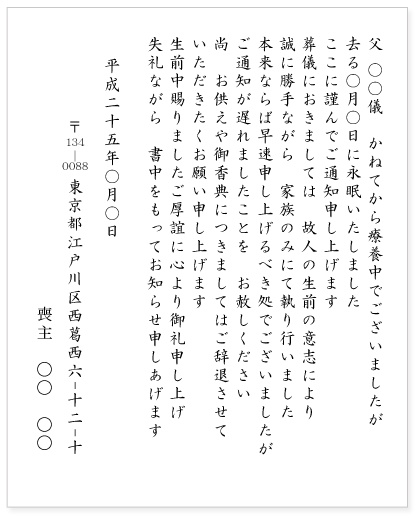 父　〇〇儀　かねてから療養中でございましたが
去る〇月〇日に永眠いたしました
ここに謹んでご通知申し上げます
葬儀におきましては　故人の生前の意志により
誠に勝手ながら　家族のみにて執り行いました
本来ならば早速申し上げるべき処でございましたが
ご通知が遅れましたことを　お赦しください
尚　お供えや御香典につきましてはご辞退させて
いただきたくお願い申し上げます
生前中賜りましたご厚誼に心より御礼申し上げ
失礼ながら　書中をもってお知らせ申しあげます
平成二十五年〇月〇日
〒134-0088 東京都江戸川区西葛西六-十二-十
喪主　〇〇　〇〇